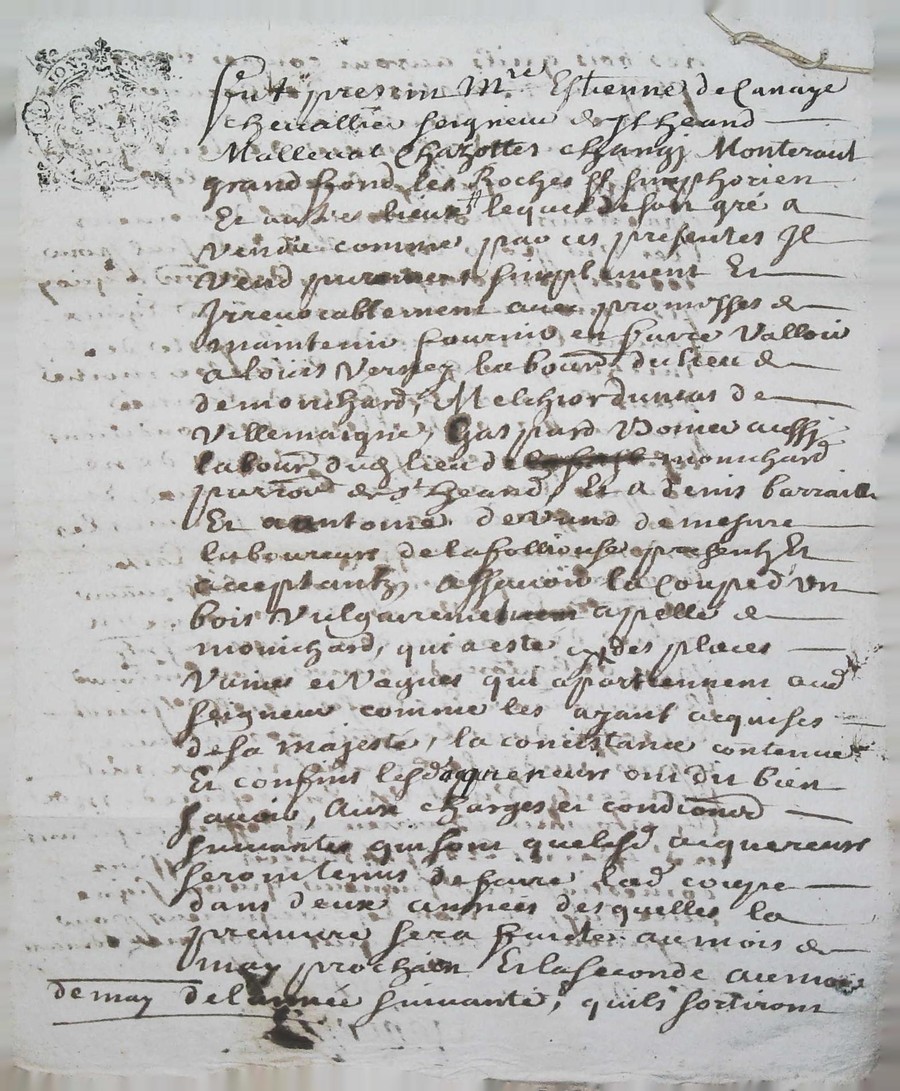 fut present Mre Estienne de Canaye
chevallier seigneur de St heand
Mallevat Chazottes changi Monteraut
grand fond les Roches St simphorien
Et autres lieux lequel de son gré a
vendu comme par ces presentes Il
vend purement simplement Et
Irrevocablement avec promesses de
maintenir fournir et faire valloir
a louis Verney labourr du lieu de
de monichard, Melchior dumas de
Villemaigne, Gaspard aussy
labourr dud lieu de monichard
parroe de st heand, Et a denis barraille
Et a antoine devuns de mesure
laboureurs de la follieuse presentz Et
acceptantz, assavoir la coupe d'un
bois vulgairemet appelle de
monichard, qui a esté des places
vaines et vagues qui appartiennent aud
seigneur comme les ayant acquises
de sa majesté, la concistance contenue
Et confins lesd preneurs ont dit bien
savoir, aux charges et conditions
suivantes qui sont que lesd acquereurs
seront tenus de faire lad coupe
dans deux années desquelles la
premiere sera faite au mois de
may prochain Et la seconde au mois
de may de l'année suivante, quils sortiront